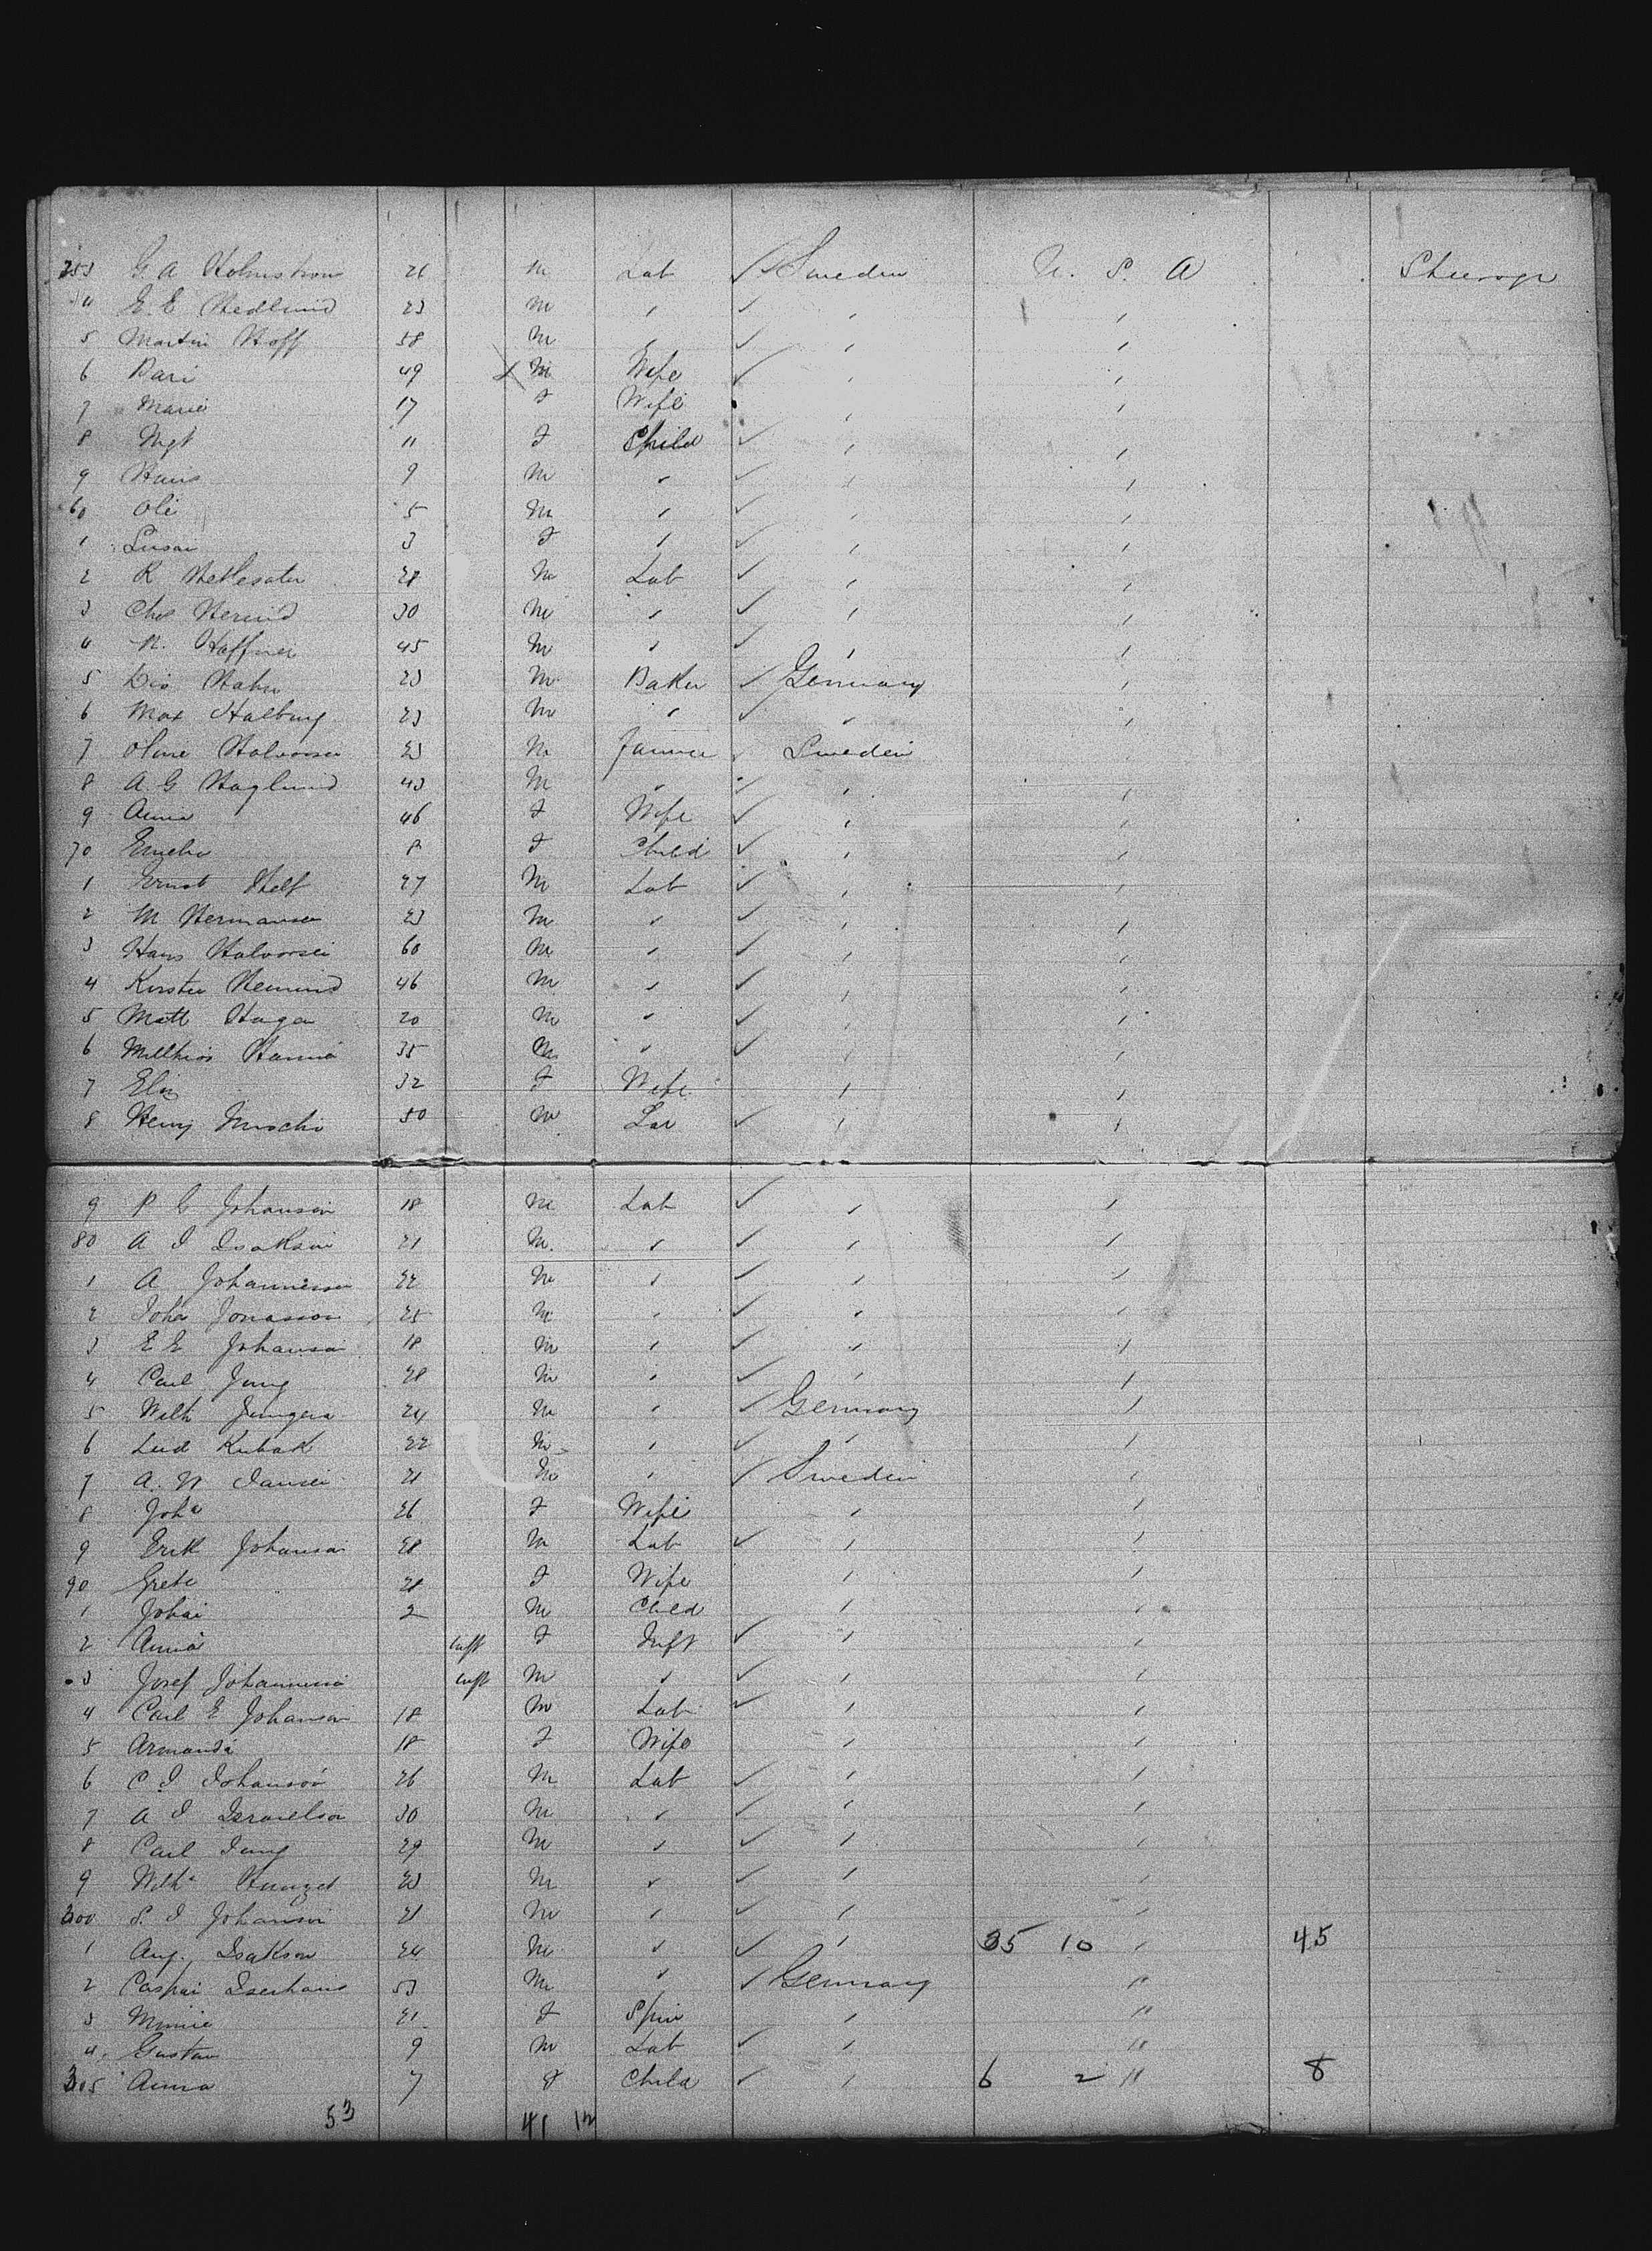 253 G. A Holmstrom 26 M Lab ✓ Sweden U. S. A Steerage
4 E. E Hedlund 23 M " ✓ " "
5 Martin Hoff 58 M " ✓ " "
6 Kari 49 M Wife ✓ " "
7 Marie 17 F Wife " "
8 Mgt 11 F Child ✓ " "
9 Hans 9 M " ✓ " "
60 Ole 5 M " ✓ " "
1 3 F " ✓ " "
2 K 28 M Lab ✓ " "
3 Chs 30 M " ✓ " "
4 N. Haffner 45 M " ✓ " "
5 Hahn 23 M Baker ✓ Germany "
6 Max Halburg 23 M " ✓ " "
7 Halvorsen 23 M Farmer ✓ Sweden
8 A G Haglund 43 M " ✓ " "
9 Anna 46 F Wife ✓ " "
70 Emelie 8 F Child ✓ " "
1 Ernst Helf 27 M Lab ✓ " "
2 M Hermansen 23 M " ✓ " "
3 Hans Halvorsen 60 M " ✓ " "
4 Kirsten 46 M " ✓ " "
5 Matt Haga 20 M " ✓ " "
6 Hanna 35 M " ✓ " "
7 Eliz 32 F Wife " "
8 Henry 50 M ✓ " "
9 P C Johanson 18 M Lab ✓ " "
80 A I Isakson 21 M. " ✓ " "
1 A Johannesson 22 M " ✓ " "
2 Joha Jonasson 25 M " ✓ " "
3 E E Johanson 18 M " ✓ " "
4 Carl Jung 28 M " ✓ " "
5 Wilh 24 M " ✓ Germany "
6 Lud Kubak 22 M " ✓ " "
7 A. N Jansen 21 M " ✓ Sweden "
8 Joha 26 F Wife " "
9 Erik Johanson 28 M Lab ✓ " "
90 Grete 28 F Wife " "
1 Johan 2 M Child " "
2 Anna inft F Inft ✓ " "
3 Josef Johannesson inft M " ✓ " "
4 Carl E Johanson 18 M Lab ✓ " "
5 Armanda 18 F Wife " "
6 C I Johanson 26 M Lab ✓ " "
7 A I Israelson 30 M " ✓ " "
8 Carl Jung 29 M " ✓ " "
9 Wilha 23 M " ✓ " "
300 S. I Johanson 21 M " ✓ " "
1 Aug. Isakson 24 M " ✓ " 35 10 " 45
2 Caspar Iserhaus 53 M " ✓ Germany "
3 Minnie 21 F Spin " "
4. Gustav 9 M Lab ✓ " "
305 Anna 7 F Child ✓ " 6 2 " 8
53 41 12